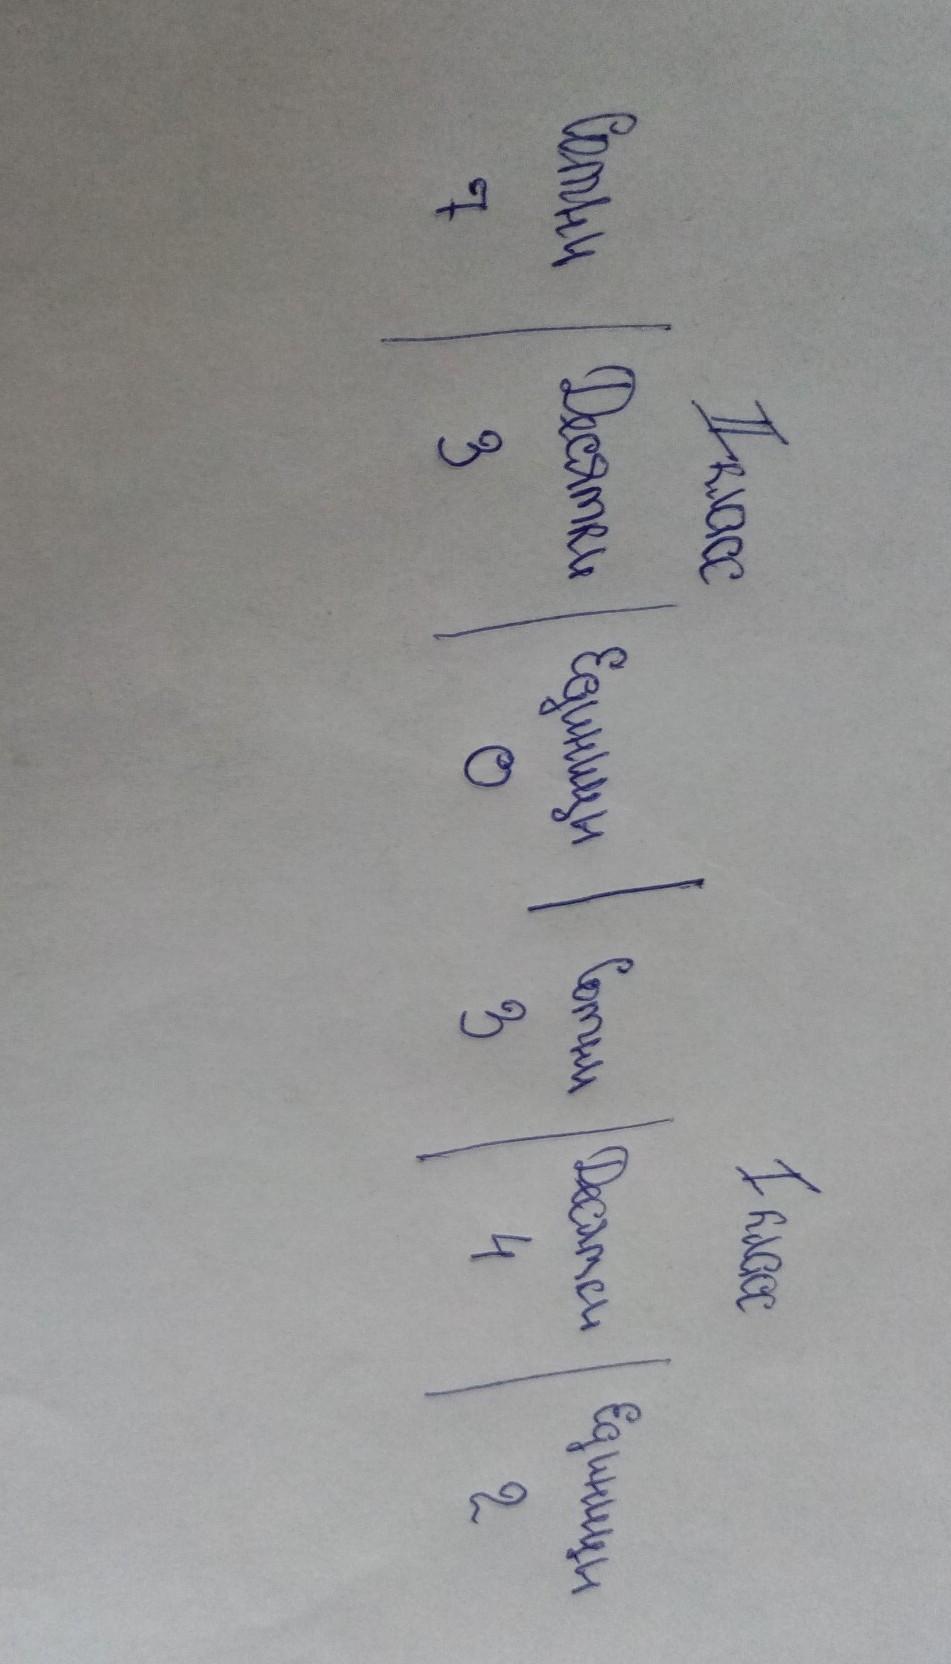 II класс I класс
Сотни | Десятки | Единицы | Сотни | Десятки | Единицы
7 3 0 3 4 2